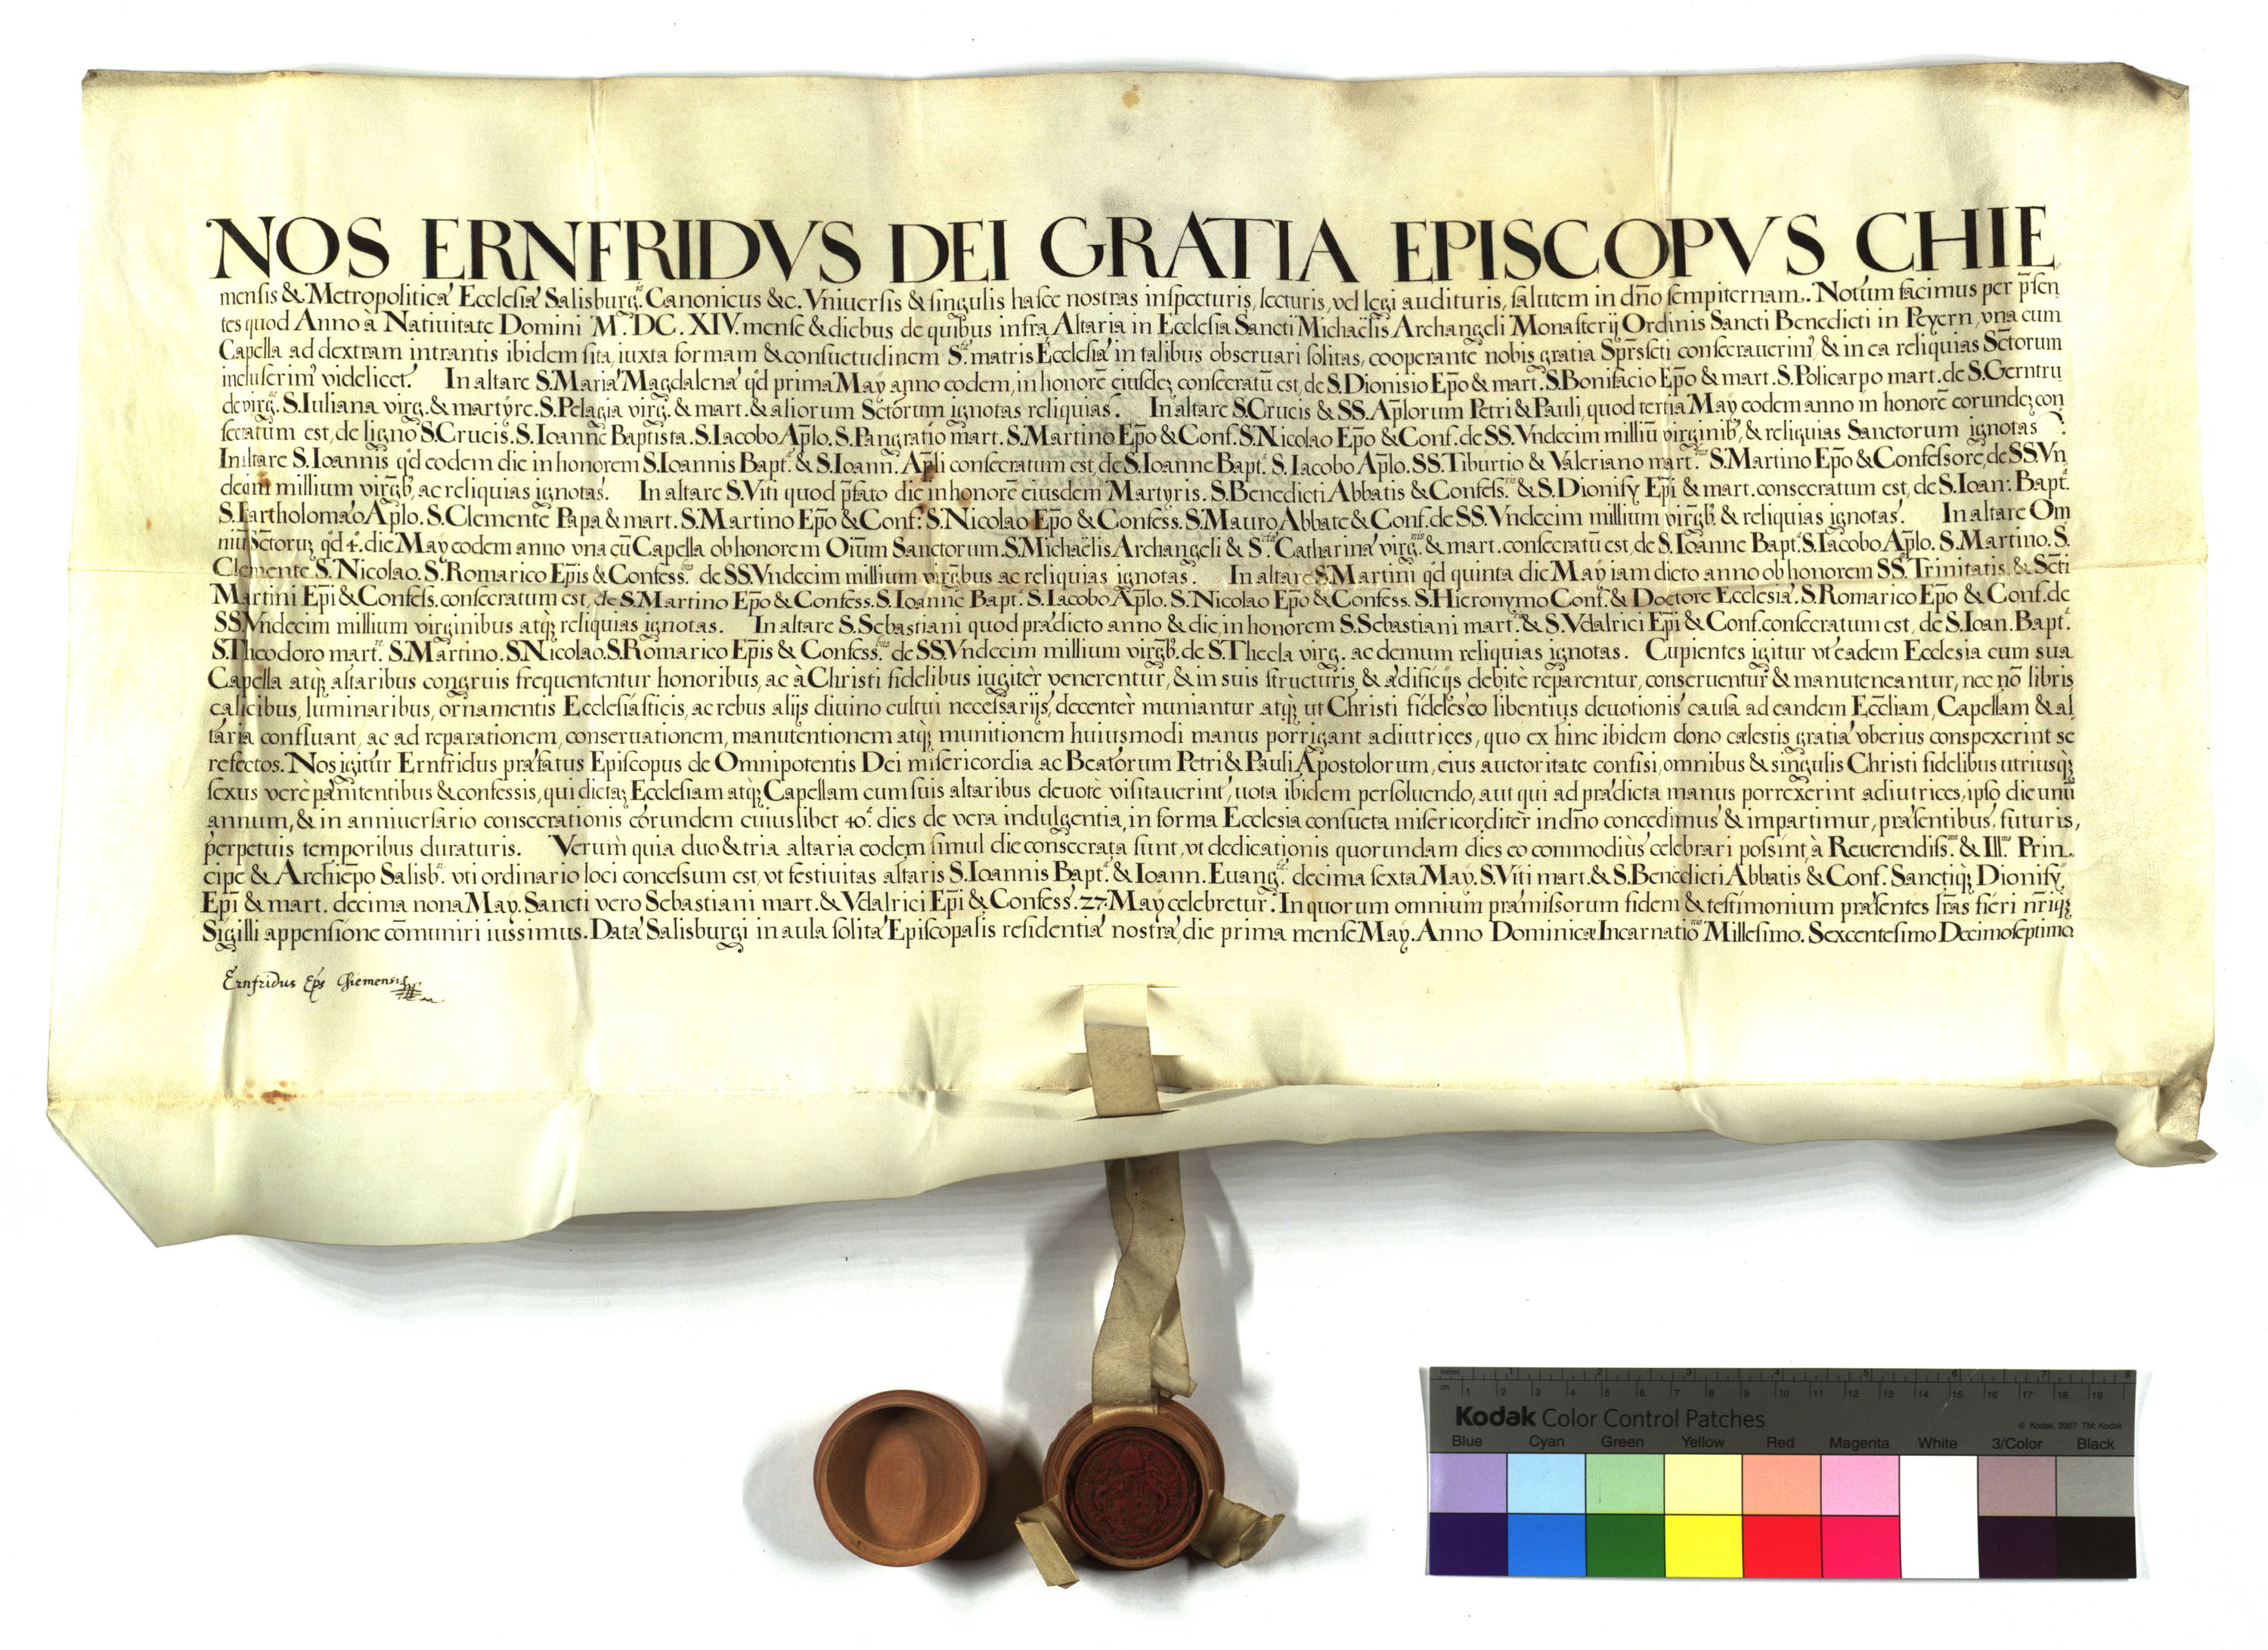 NOS ERNFRIDVS DEI GRATIA EPISCOPVS CHIE
mensis & Metropoliticæ Ecclesiæ Salisburg. Canonicus &c. Vniuersis & singulis hasce nostras inspecturis, lecturis, vel legi audituris, salutem in dño sempiternam. Notum facimus per p̃sen
tes quod Anno à Natiuitate Domini M. DC. XIV. mense & diebus de quibus infra Altaria in Ecclesia Sancti Michaëlis Archangeli Monasterij Ordinis Sancti Benedicti in Peyern, vna cum
Capella ad dextram intrantis ibidem sita, iuxta formam & consuetudinem S.tæ matris Ecclesiæ in talibus obseruari solitas, cooperante nobis gratia Sp̃rs sctĩ consecrauerim9, & in ea reliquias Sctorum
incluserim9 videlicet. In altare S. Mariæ Magdalenæ qd prima Maÿ anno eodem, in honorē eiusdeȝ consecratū est, de S. Dionisio Ep̃o & mart. S. Bonifacio Ep̃o & mart. S. Policarpo mart. de S. Gerntru
de virg. S. Iuliana virg. & martyre. S. Pelagia virg. & mart. & aliorum Sctorum ignotas reliquias. In altare S. Crucis & SS. Ap̃lorum Petri & Pauli, quod tertia Maÿ eodem anno in honorē eorundeȝ con
secratum est, de ligno S. Crucis. S. Ioanne Baptista. S. Iacobo Ap̃lo. S. Pangratio mart. S. Martino Ep̃o & Conf. S. Nicolao Ep̃o & Conf. de SS. Vndecim milliū virginib9, & reliquias Sanctorum ignotas.
In altare S. Ioannis qd eodem die in honorem S. Ioannis Bapt. & S. Ioann. Ap̃li consecratum est, de S. Ioanne Bapt. S. Iacobo Ap̃lo. SS. Tiburtio & Valeriano mart. S. Martino Ep̃o & Confessore, de SS. Vn
decim millium virgb9, ac reliquias ignotas. In altare S. Viti quod p̃fato die in honorē eiusdem Martyris. S. Benedicti Abbatis & Confess. & S. Dionisÿ Ep̃i & mart. consecratum est, de S. Ioan: Bapt.
S. Bartholomæo Ap̃lo. S. Clemente Papa & mart. S. Martino Ep̃o & Conf: S. Nicolao Ep̃o & Confess. S. Mauro Abbate & Conf. de SS. Vndecim millium virgb9. & reliquias ignotas. In altare Om
niū Sctoruȝ qd 4. die Maÿ eodem anno vna cū Capella ob honorem Oiūm Sanctorum. S. Michaëlis Archangeli & S.tæ Catharinæ virg. & mart. consecratū est, de S. Ioanne Bapt. S. Iacobo Ap̃lo. S. Martino. S.
Clemente. S. Nicolao. S. Romarico Ep̃is & Confess. de SS. Vndecim millium virgbus ac reliquias ignotas. In altare S. Martini qd quinta die Maÿ iam dicto anno ob honorem SS. Trinitatis & Scti
Martini Ep̃i & Confess. consecratum est, de S. Martino Ep̃o & Confess. S. Ioanne Bapt. S. Iacobo Ap̃lo. S. Nicolao Ep̃o & Confess. S. Hieronymo Conf. & Doctore Ecclesiæ. S. Romarico Ep̃o & Conf. de
SS. Vndecim millium virginibus atqȝ reliquias ignotas. In altare S. Sebastiani quod prædicto anno & die, in honorem S. Sebastiani mart. & S. Vdalrici Ep̃i & Conf. consecratum est, de S. Ioan. Bapt.
S. Theodoro mart. S. Martino. S. Nicolao. S. Romarico Ep̃is & Confess. de SS. Vndecim millium virgb9. de S. Thecla virg. ac demum reliquias ignotas. Cupientes igitur vt eadem Ecclesia cum sua
Capella atqȝ altaribus congruis frequententur honoribus, ac à Christi fidelibus iugitèr venerentur, & in suis structuris, & ædificijs debitè reparentur, conseruentur & manuteneantur, nec nō libris
calicibus, luminaribus, ornamentis Ecclesiasticis, ac rebus alijs diuino cultui necessarijs, decentèr muniantur atqȝ ut Christi fideles eo libentius deuotionis causa ad eandem Ecc̃liam, Capellam & al
taria confluant, ac ad reparationem, conseruationem, manutentionem atqȝ munitionem huiusmodi manus porrigant adiutrices, quo ex hinc ibidem dono cælestis gratiæ vberius conspexerint se
refectos. Nos igitur Ernfridus præfatus Episcopus de Omnipotentis Dei misericordia ac Beatorum Petri & Pauli Apostolorum, eius auctoritate confisi, omnibus & singulis Christi fidelibus utriusqȝ
sexus verè pœnitentibus & confessis, qui dictaȝ Ecclesiam atqȝ Capellam cum suis altaribus deuotè visitauerint, uota ibidem persoluendo, aut qui ad prædicta manus porrexerint adiutrices, ipso die unū
annum, & in anniuersario consecrationis eorundem cuiuslibet 40. dies de vera indulgentia, in forma Ecclesiæ consueta misericorditèr in dño concedimus & impartimur, præsentibus, futuris,
perpetuis temporibus duraturis. Verùm quia duo & tria altaria eodem simul die consecrata sunt, vt dedicationis quorundam dies eo commodiùs celebrari possint, à Reuerendiss.mo & Ill.mo Prin
cipe & Archiep̃o Salisb. vti ordinario loci concessum est, vt festiuitas altaris S. Ioannis Bapt. & Ioann. Euang. decima sexta Maÿ. S. Viti mart. & S. Benedicti Abbatis & Conf. Sanctiqȝ Dionisÿ
Ep̃i & mart. decima nona Maÿ. Sancti vero Sebastiani mart. & Vdalrici Ep̃i & Confess. 27. Maÿ celebretur. In quorum omnium præmissorum fidem & testimonium præsentes lr̃as fieri nr̃iqȝ
Sigilli appensione cōmuniri iussimus. Datæ Salisburgi in aula solitæ Episcopalis residentiæ nostræ, die prima mense Maÿ. Anno Dominicæ Incarnatio.nis Millesimo. Sexcentesimo Decimoseptimo
Ernfridus Eps Chiemensis
inches 1 2 3 4 5 6 7 8
cm 1 2 3 4 5 6 7 8 9 10 11 12 13 14 15 16 17 18 19
Kodak Color Control Patches
© Kodak, 2007 TM: Kodak
Blue Cyan Green Yellow Red Magenta White 3/Color Black